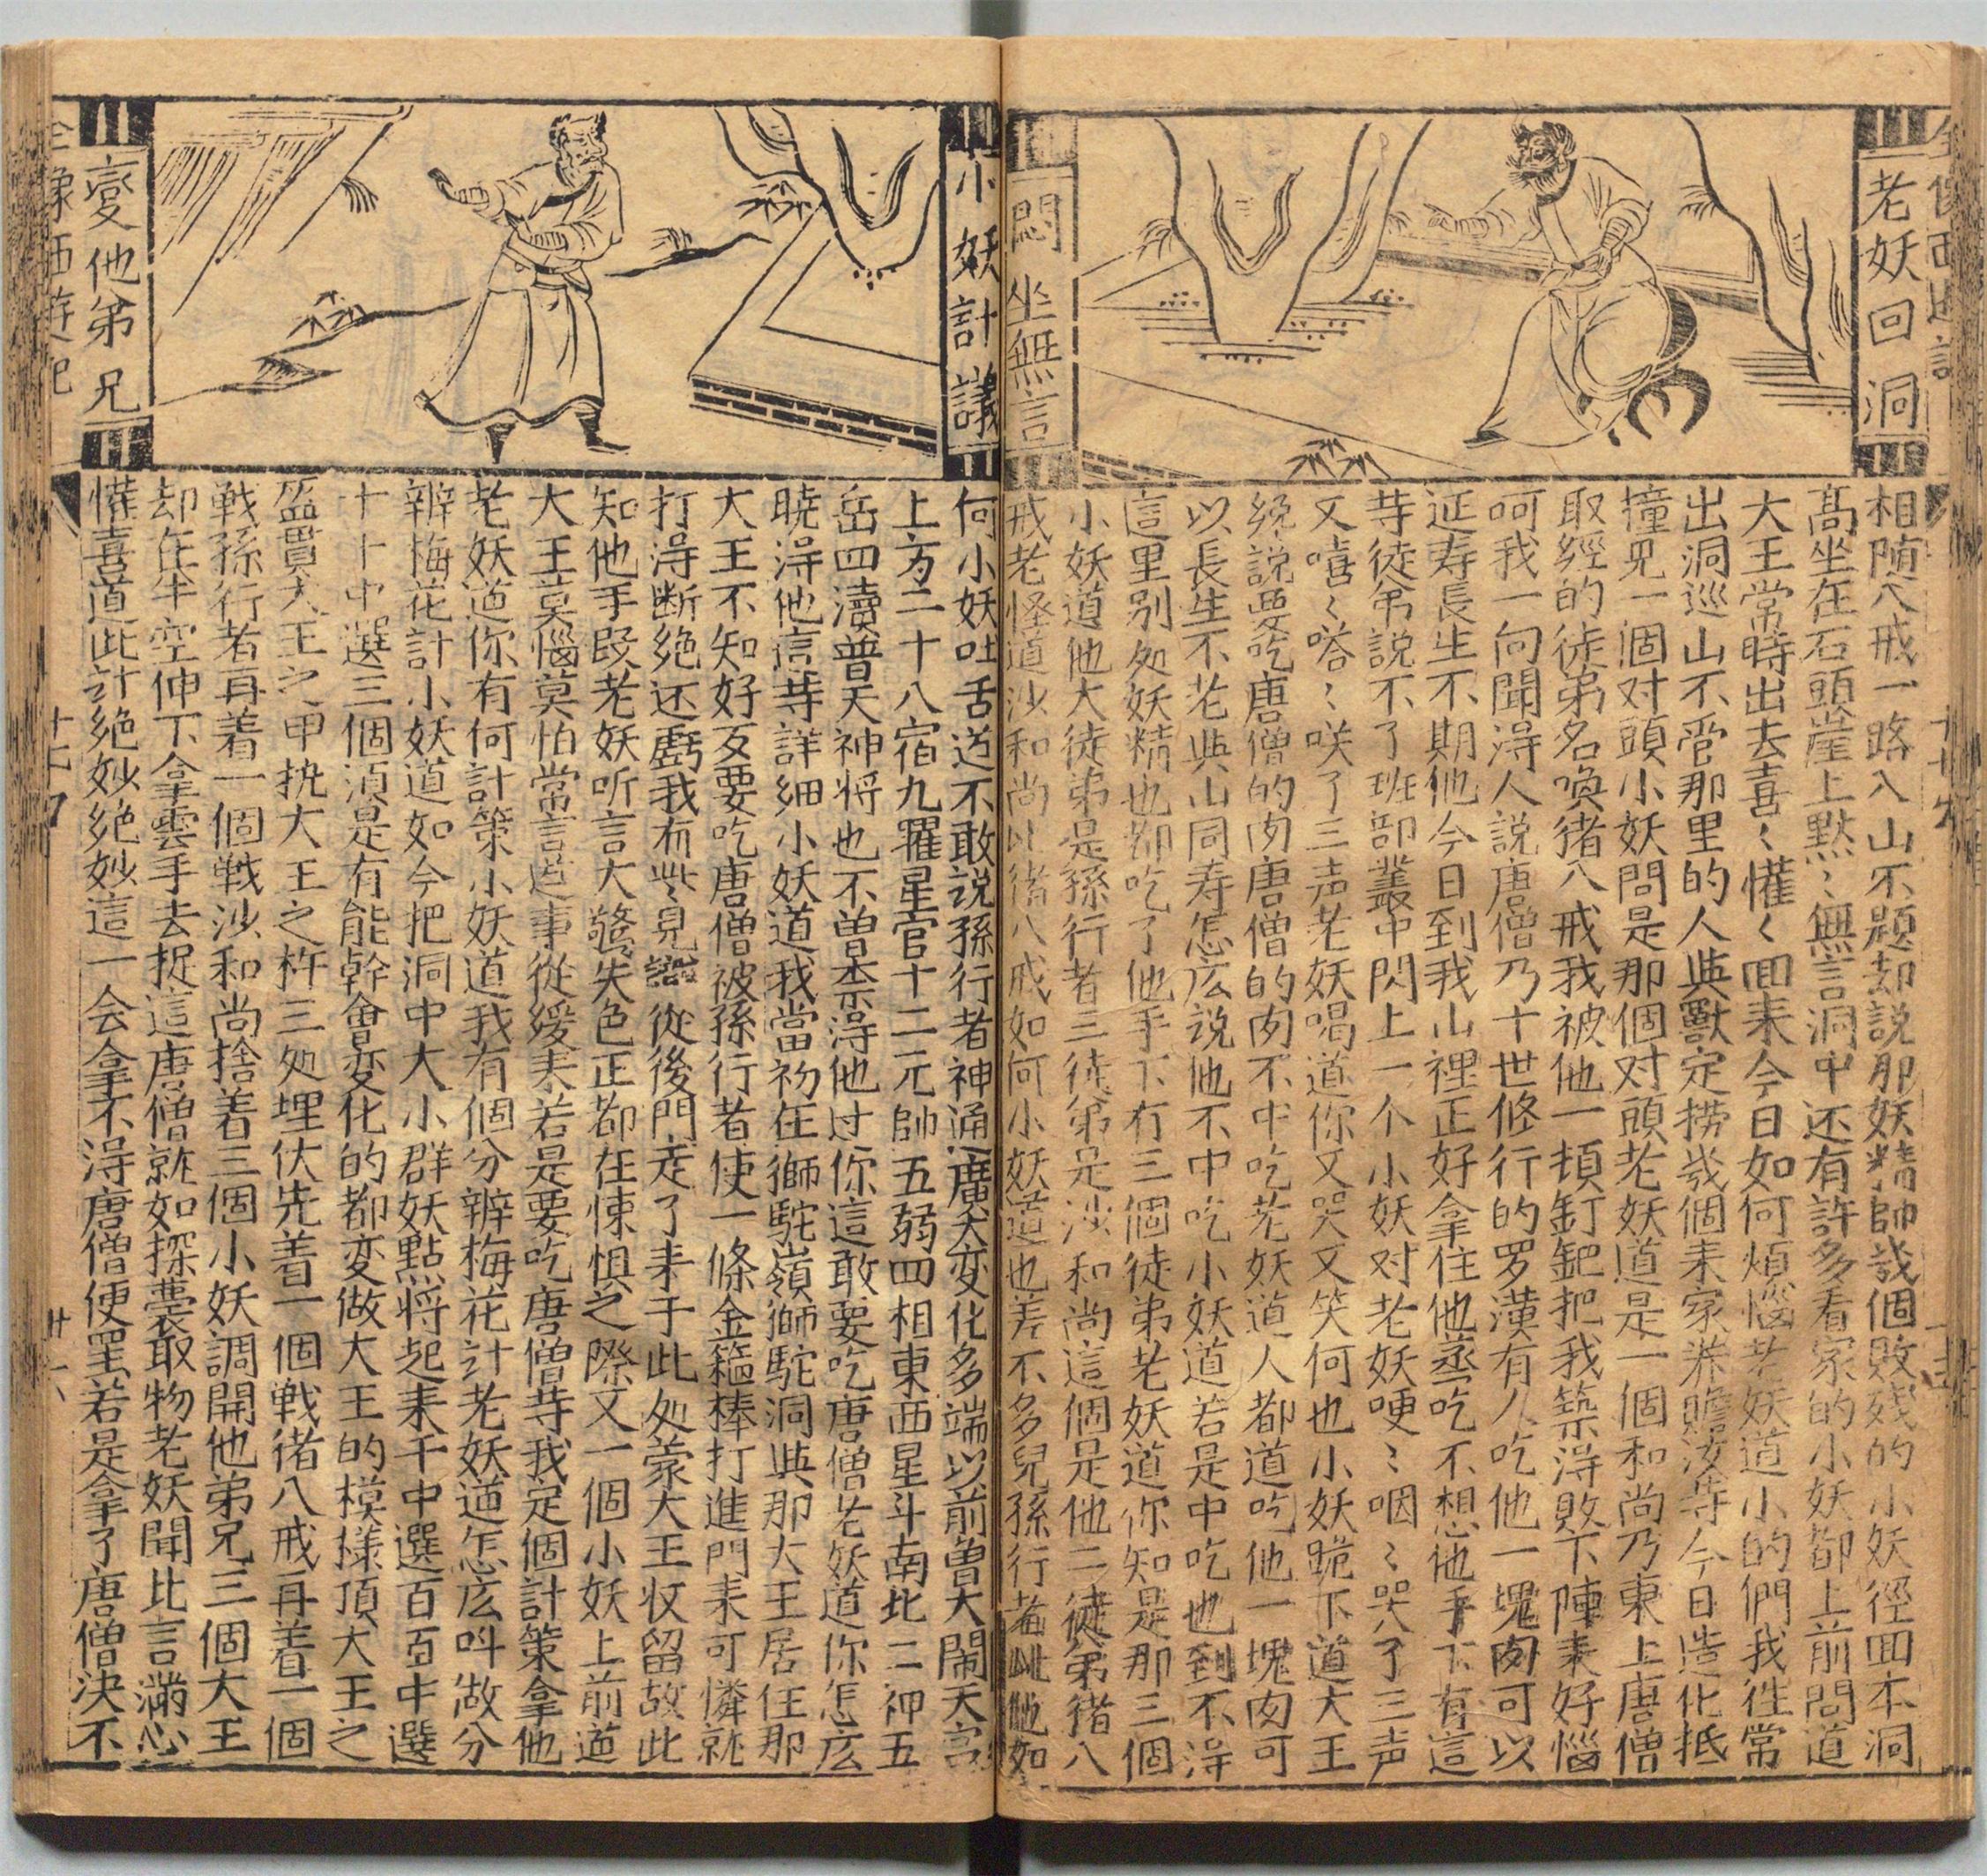 老妖回洞
悶坐無言
相随八戒一路入山不題却説那妖精帥㡬個敗殘的小妖徑囬本洞
髙坐在石頭崖上黙〻無言洞中还有許多看家的小妖都上前問道
大王常時出去喜〻懽〻囬来今日如何煩惱老妖道小的們我徃常
出洞巡山不管那里的人與獸定撈㡬個来家养贍汝等今日造化抵
撞見一個对頭小妖問是那個对頭老妖道是一個和尚乃東上唐僧
取經的徒弟名喚猪八戒我被他一頓釘鈀把我築淂敗下陣来好惱
呵我一向聞淂人説唐僧乃十世修行的罗漢有人吃他一塊肉可以
延寿長生不期他今日到我山裡正好拿住他蒸吃不想他手下有這
䓁徒弟説不了班部叢中閃上一个小妖对老妖哽〻咽〻哭了三声
又嘻〻嗒〻咲了三声老妖喝道你又哭又笑何也小妖跪下道大王
𦂳説要吃唐僧的肉唐僧的肉不中吃老妖道人都道吃他一塊肉可
以長生不老與山同寿怎庅説他不中吃小妖道若是中吃也到不淂
這里别処妖精也都吃了他手下有三個徒弟老妖道你知是那三個
小妖道他大徒弟是孫行者三徒弟是沙和尚這個是他二徒弟猪八
戒老怪道沙和尚比猪八戒如何小妖道也差不多兒孫行者比他如
小妖計議
變他弟兄
何小妖吐舌道不敢説孫行者神通廣大变化多端以前曾大閙天宫
上方二十八宿九曜星官十二元帥五弱四相東西星斗南北二神五
岳四瀆普天神将也不曽柰淂他过你這敢要吃唐僧老妖道你怎庅
曉淂他這䓁詳細小妖道我當初在獅駝嶺獅駝洞與那大王居住那
大王不知好歹要吃唐僧被孫行者使一條金箍棒打進門来可憐就
打淂断絶还虧我有些見識從後門走了来于此処蒙大王収留故此
知他手段老妖听言大驚失色正都在悚惧之際又一個小妖上前道
大王莫惱莫怕常言道事從緩来若是要吃唐僧䓁我定個計策拿他
老妖道你有何計策小妖道我有個分辧梅花計老妖道怎庅呌做分
辧梅花計小妖道如今把洞中大小群妖點将起来千中選百百中選
十十中選三個湏是有能幹會变化的都变做大王的模樣頂大王之
盔貫大王之甲执大王之杵三処埋伏先着一個戦猪八戒再着一個
戦孫行者再着一個戦沙和尚捨着三個小妖調開他弟兄三個大王
却在半空伸下拿雲手去捉這唐僧就如探囊取物老妖聞此言滿心
懽喜道此計絶妙絶妙這一会拿不淂唐僧便罢若是拿了唐僧决不
全像西遊記